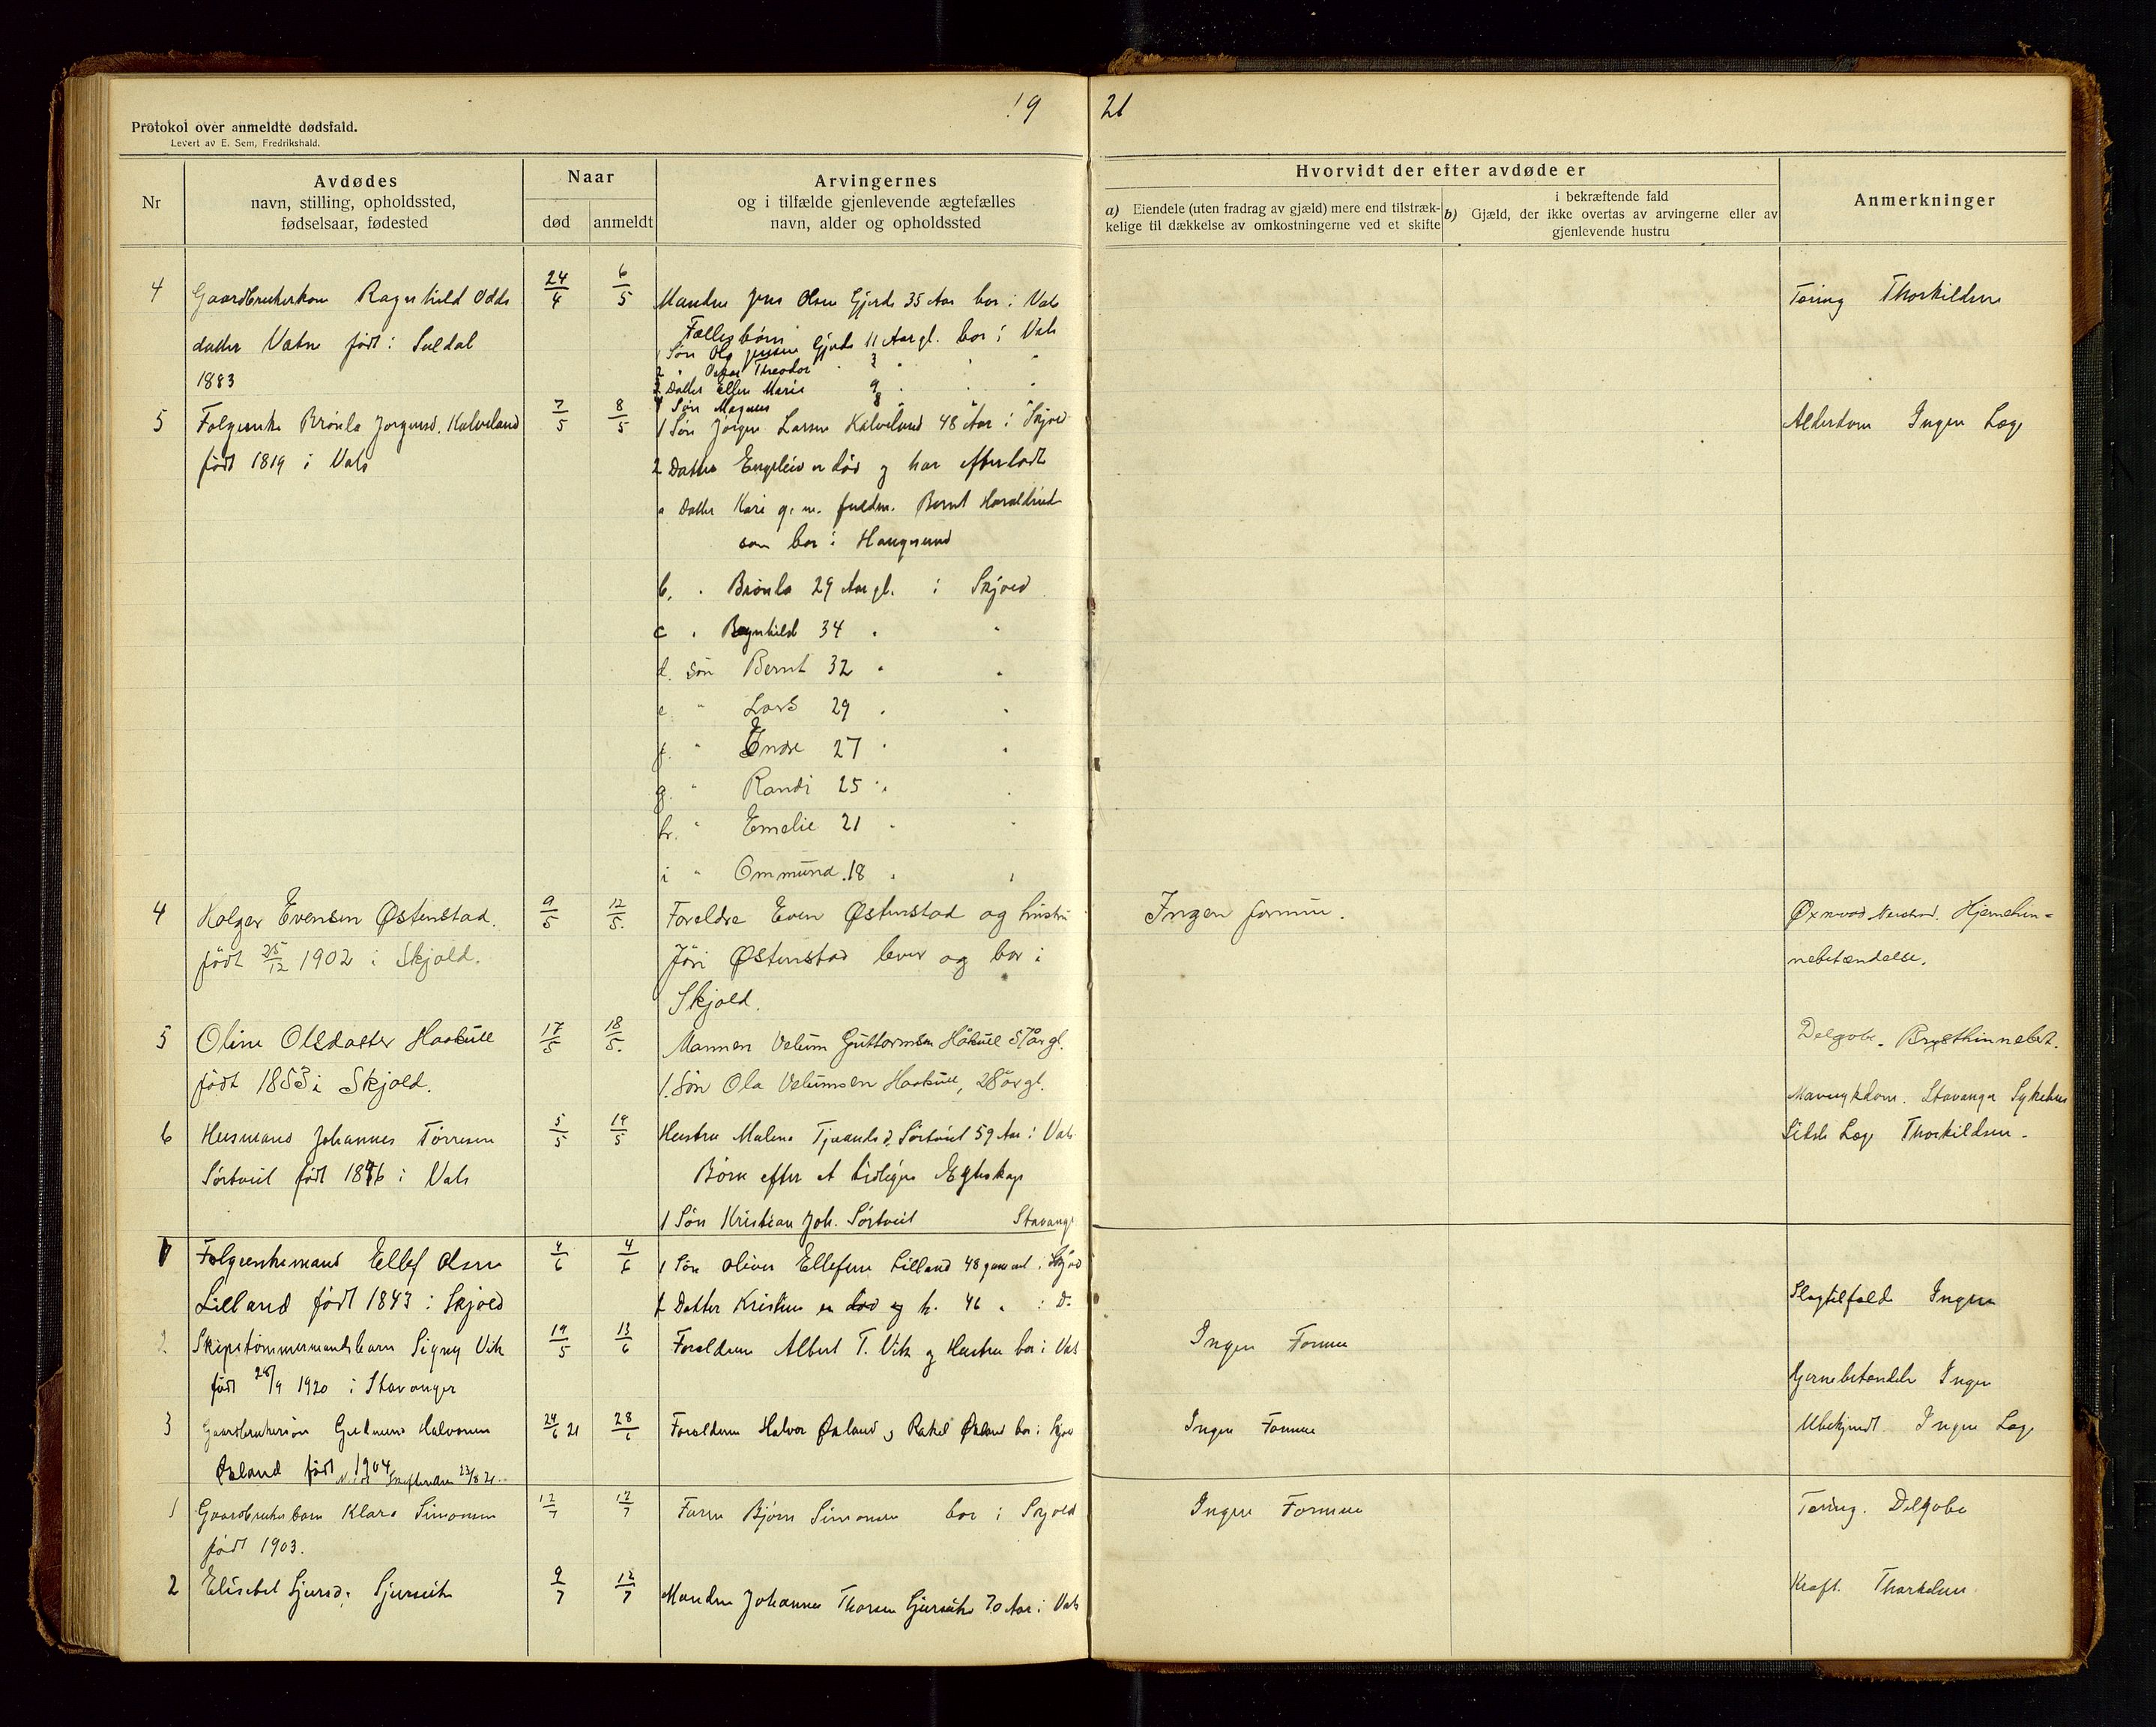 19 21
Protokol over anmeldte dødsfald.
Levert av E. Sem, Fredrikshald.
Nr
Avdødes
navn, stilling, opholdssted,
fødselsaar, fødested
Naar
død anmeldt
Arvingernes
og i tilfælde gjenlevende ægtefælles
navn, alder og opholdssted
Hvorvidt der efter avdøde er
a) Eiendele (uten fradrag av gjæld) mere end tilstræk-
kelige til dækkelse av omkostningerne ved et skifte
i bekræftende fald
b) Gjæld, der ikke overtas av arvingerne eller av
gjenlevende hustru
Anmerkninger
4 Gaardbrukerkone Ragnhild Odds 24/4 6/5 Manden Jens Olsen Gjerde 35 Aar bor i Vats Tæring Thorkildsen
datter Vatne født i Suldal Fællesbørn
1 Søn Ola Jensen Gjerde 11 Aar gl. bor i Vats
1883 2 " Oskar Theodor
3 Datter Ellen Marie 9
4 Søn Magnus 8
5 Folgeenke Brönla Jorgensd. Kalveland 7/5 8/5 1 Søn Jörgen Larsen Kalveland 48 Aar i Skjold Alderdom Ingen Læge
født 1819 i Vats 2 Datter Engeleiv er död og har efterladt
a Datter Kari g. m. fuldm. Bernt Haraldseid
som bor i Haugesund
b. " Brönla 29 Aar gl. i Skjold
c " Ragnhild 34 " "
d. Sön Bernt 32 " "
e. " Lars 29 " "
f. " Endre 27 " "
g. " Randi 25 " "
h. " Emelie 21 " "
i " Ommund 18 " "
4 Holger Evensen Østenstad. 9/5 12/5. Foreldre Even Østenstad og hustru Ingen formue. Øxnevad Nerstrand. Hjernehin-
født 25/12 1902 i Skjold. Jöri Østenstad lever og bor i nebetændelse.
Skjold.
5 Oline Olsdatter Haakull 17/5 18/5. Mannen Velum Guttormsen Håkull 57 år gl. Delgobe. Brysthinnebet.
født 1853 i Skjold. 1. Sön Ola Velumsen Haakull, 28 år gl.
Mavesykdom. Stavanger Sykehus
6 Husmand Johannes Törresen 5/5 14/5 Hustru Malena Tjerandsd. Sørtveit 59 Aar i Vats Sidste Læge Thorkildsen.
Sørtveit født 1846 i Vats Børn efter et tidligere Egteskap
1 Søn Kristian Joh. Sørtveit Stavanger
1 Folgeenkemand Ellef Olsen 4/6 4/6 1 Søn Oliver Ellefsen Lilland 48 gammel i Skjold
Lilland født 1843 i Skjold 2 Datter Kristine er död og h. 46 " i D. Slagtilfælde Ingen
2 Skipstømmermandsbarn Signy Vik 19/5 13/6 Forældrene Albert T. Vik og Hustru bor i Vats Ingen Formue
født 28/9 1920 i Stavanger Hjernebetændelse Ingen
3 Gaardbrukersøn Gudmund Halvorsen 24/6 21 28/6 Forældrene Halvor Øxland og Rakel Øxland bor i Skjold Ingen Formue Ubekjendt Ingen Læge
Øxland født 1904
23/8 21.
1 Gaardbrukerbarn Klara Simonsen 12/7 12/7 Faren Bjørn Simonsen bor i Skjold Ingen Formue Tæring. Delgobe
født 1903.
2 Elisabet Sjursd. Sjursvik 9/7 12/7 Manden Johannes Thorsen Sjursvik 70 Aar i Vats Kræft. Thorkelsen.